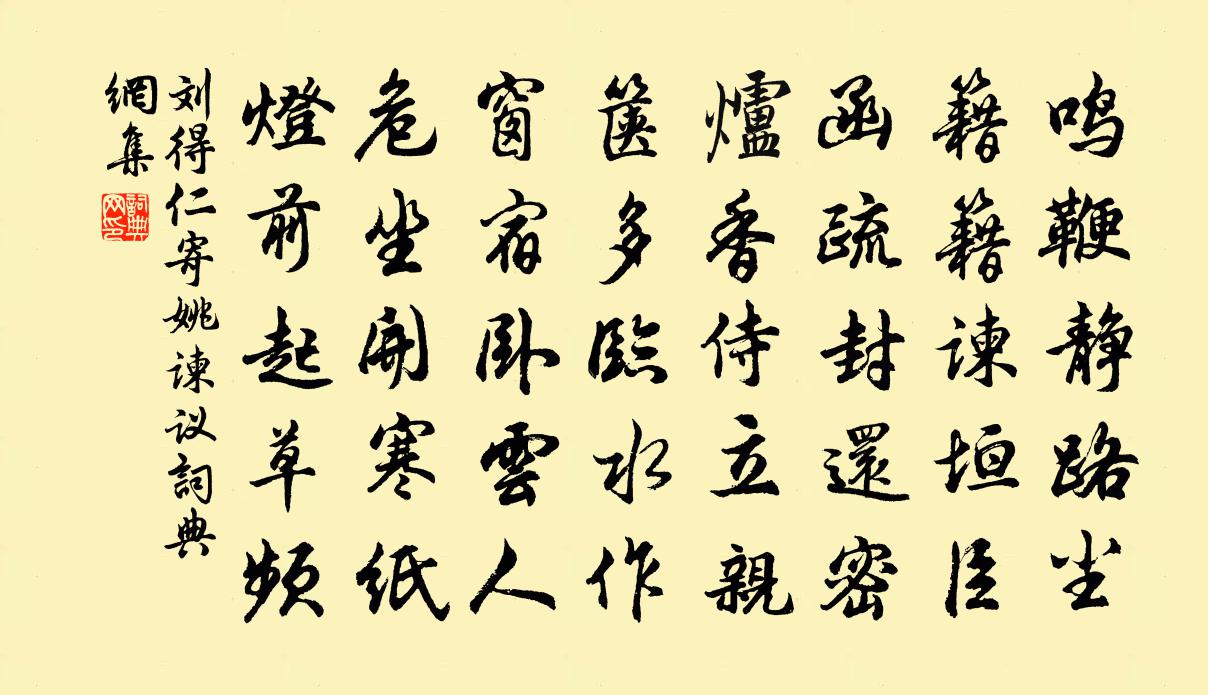 鸣鞭静路尘
籍籍谏垣臣
函疏封還密
爐香侍立親
箧多臨水作
窗宿卧雲人
危坐開寒纸
燈前起草频
刘得仁寄姚谏议詞典
網集
詞典网印